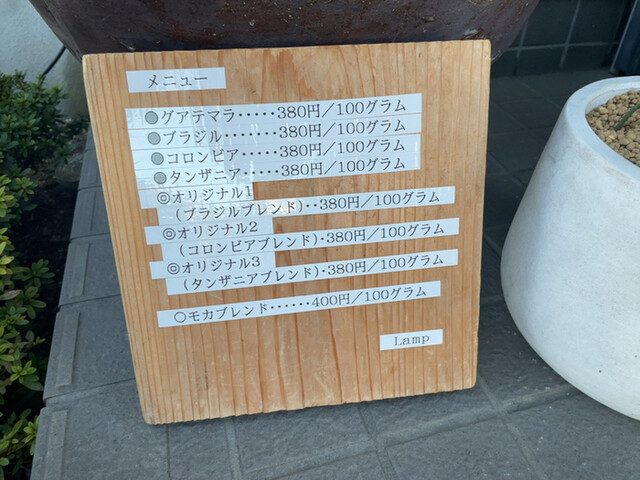 メニュー
●グアテマラ・・・・・380円／100グラム
●ブラジル・・・・・・380円／100グラム
●コロンビア・・・・380円／100グラム
●タンザニア・・・・・380円／100グラム
◎オリジナル1
(ブラジルブレンド)・・380円／100グラム
◎オリジナル2
(コロンビアブレンド)・380円／100グラム
◎オリジナル3
(タンザニアブレンド)・380円／100グラム
○モカブレンド・・・・・・400円／100グラム
Lamp